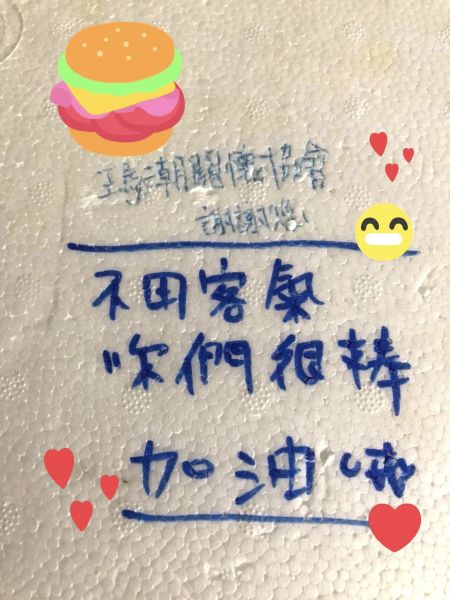 瑪潮關懷協會
謝謝您
不用客氣
你們很棒
加油